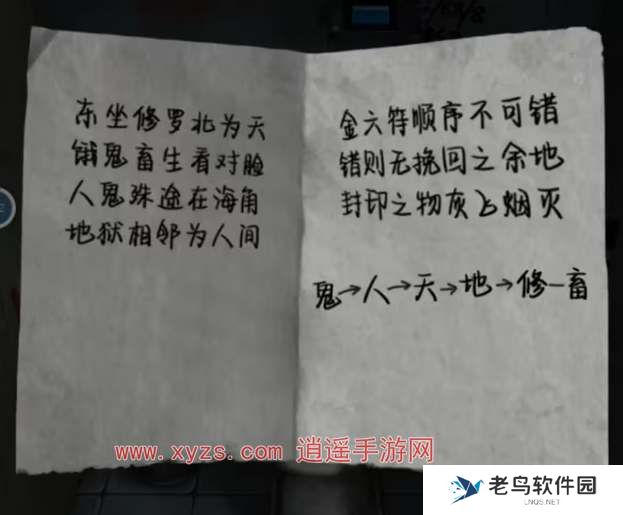 东坐修罗北为天
饿鬼畜生看对脸
人鬼殊途在海角
地狱相邻为人间
金六符顺序不可错
错则无挽回之余地
封印之物灰飞烟灭
鬼→人→天→地→修一畜
www.xyzs.com 逍遥手游网
老鸟软件园
LNQS.NET